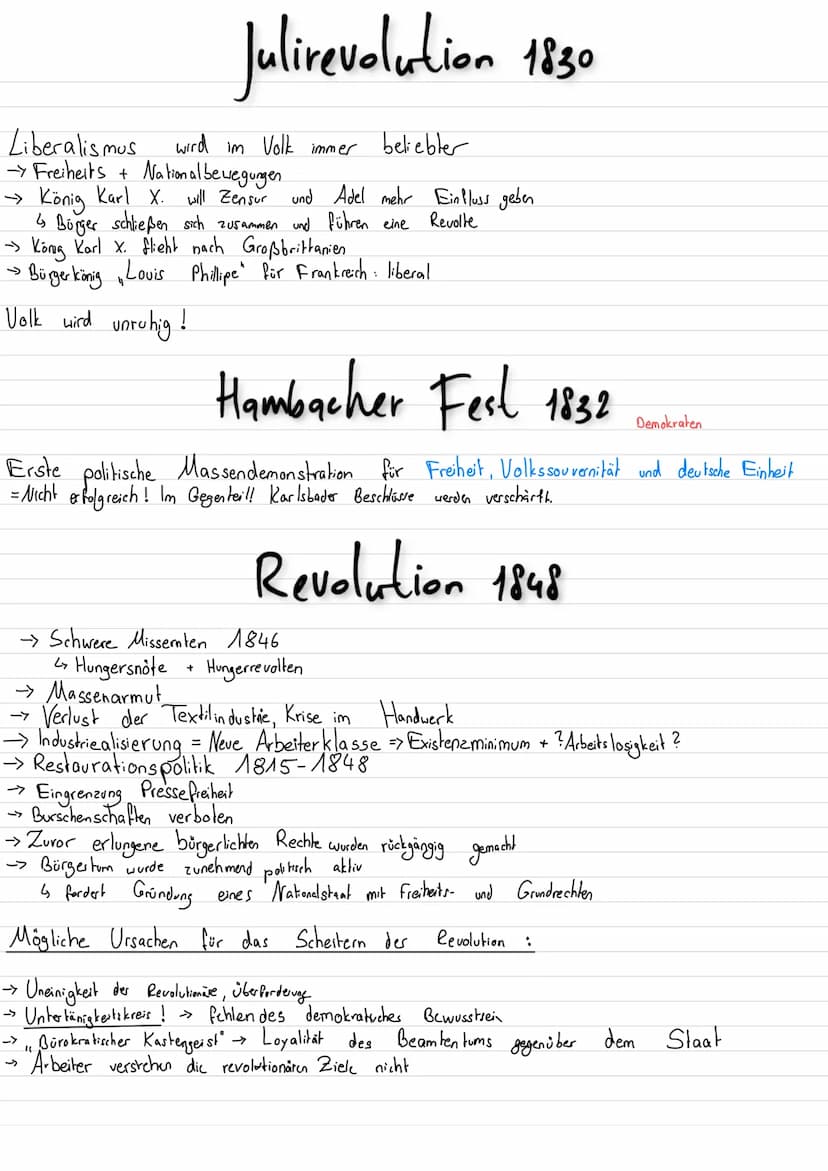 Julirevolution 1830
Liberalismus wird im Volk immer beliebter
→ Freiheits + Nationalbewegungen
→ König Karl X. will Zensur und Adel mehr Einfluss geben
↳ Bürger schließen sich zusammen und führen eine Revolte
→ König Karl X. flieht nach Großbrittanien
→ Bürgerkönig „Louis Phillipe“ für Frankreich: liberal
Volk wird unruhig!
Hambacher Fest 1832 Demokraten
Erste politische Massendemonstration für Freiheit, Volkssouvernität und deutsche Einheit
= Nicht erfolgreich! Im Gegenteil! Karlsbader Beschlüsse werden verschärft.
Revolution 1848
→ Schwere Missernten 1846
↳ Hungersnöte + Hungerrevolten
→ Massenarmut
→ Verlust der Textilindustrie, Krise im Handwerk
→ Industriealisierung = Neue Arbeiterklasse => Existenzminimum + ?Arbeitslosigkeit?
→ Restaurationspolitik 1815-1848
→ Eingrenzung Pressefreiheit
→ Burschenschaften verboten
→ Zuvor erlungene bürgerlichten Rechte wurden rückgängig gemacht
→ Bürgertum wurde zunehmend politisch aktiv
↳ fordert Gründung eines Nationalstaat mit Freiheits- und Grundrechten
Mögliche Ursachen für das Scheitern der Revolution :
→ Uneinigkeit der Revolutionäre, Überforderung
→ Untertänigkeitskreis! → fehlendes demokratisches Bewusstsein
→ „Bürokratischer Kastengeist“ → Loyalität des Beamtentums gegenüber dem Staat
→ Arbeiter verstehen die revolutionären Ziele nicht